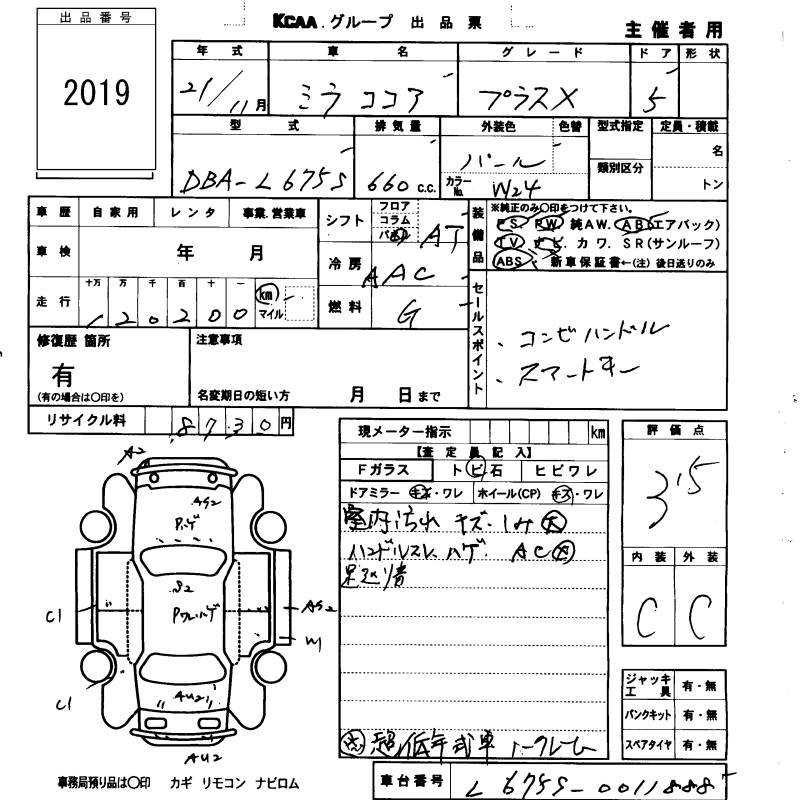 出品番号
2019
KCAA.グループ 出品票
主催者用
年式 車名 グレード ドア 形状
21/11月 ミラ ココア プラスX 5
型式 排気量 外装色 色替 型式指定 定員・積載
DBA-L675S 660 c.c. パール 名
カラーNo. W24 類別区分 トン
車歴 自家用 レンタ 事業.営業車
シフト フロア コラム パネル AT
装備品
※純正のみ○印をつけて下さい。
PS. PW. 純AW. AB(エアバッグ)
TV. ナビ. カワ. SR(サンルーフ)
ABS. 新車保証書←(注) 後日送りのみ
車検 年 月
冷房 AAC
走行 十万 万 千 百 十 一
120200 km マイル
燃料 G
セールスポイント
・コンビハンドル
・スマートキー
修復歴 箇所
有
(有の場合は○印を)
注意事項
名変期日の短い方 月 日まで
リサイクル料 8730円
現メーター指示 km
【査定員記入】
Fガラス トビ石 ヒビワレ
ドアミラー キズ・ワレ ホイール(CP) キズ・ワレ
室内汚れ キズ・シミ大
ハンドルスレ ハゲ. AC
評価点
3.5
内装 外装
C C
A2
AS2
Pハゲ
S2
C1
AS2
W
C1
AU2
AU2
ジャッキ工具 有・無
パンクキット 有・無
スペアタイヤ 有・無
超低年式車
事務局預り品は○印 カギ リモコン ナビロム
車台番号 L675S-0011888